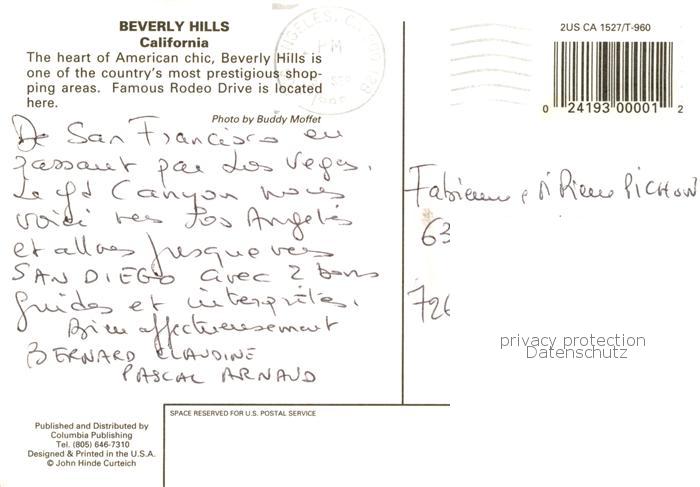 BEVERLY HILLS
California
The heart of American chic, Beverly Hills is
one of the country's most prestigious shop-
ping areas. Famous Rodeo Drive is located
here.
Photo by Buddy Moffet
De San Francisco en
passant par Las Vegas,
Le Gd Canyon nous
voici vers Los Angeles
et allons jusque vers
SAN DIEGO avec 2 bons
guides et interprètes.
Bien affectueusement
BERNARD CLAUDINE
PASCAL ARNAUD
Published and Distributed by
Columbia Publishing
Tel. (805) 646-7310
Designed & Printed in the U.S.A.
© John Hinde Curteich
SPACE RESERVED FOR U.S. POSTAL SERVICE
ANGELES, CA
PM
2US CA 1527/T-960
0 24193 00001 2
Fabienne Pierre PICHON
63
726
privacy protection
Datenschutz